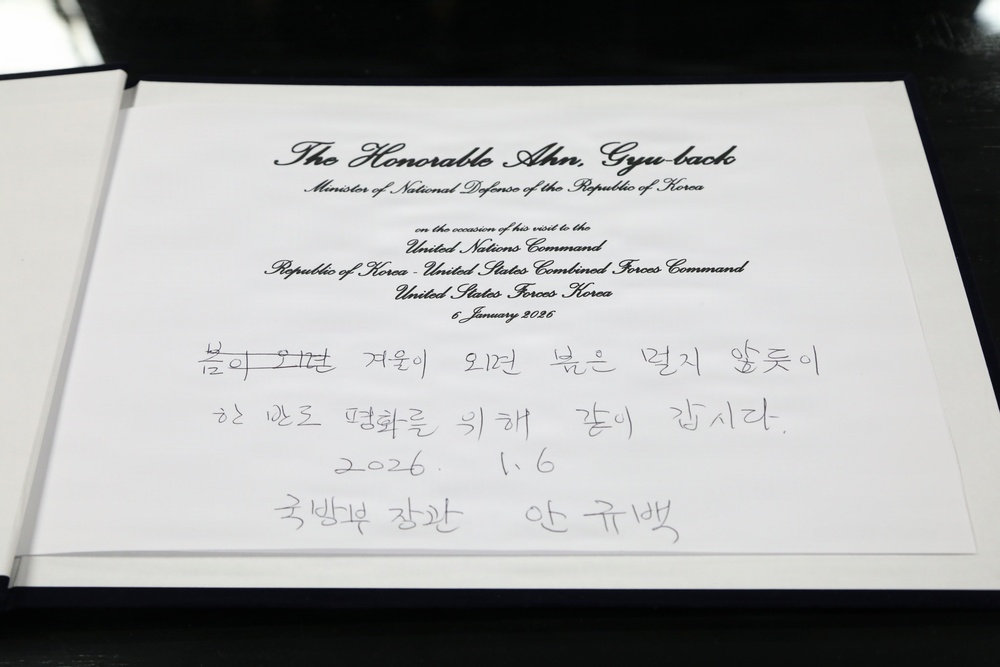 The Honorable Ahn, Gyu-back
Minister of National Defense of the Republic of Korea
on the occasion of his visit to the
United Nations Command
Republic of Korea - United States Combined Forces Command
United States Forces Korea
6 January 2026
봄이 오면 겨울이 오면 봄은 멀지 않듯이
한반도 평화를 위해 같이 갑시다.
2026. 1. 6
국방부 장관 안규백